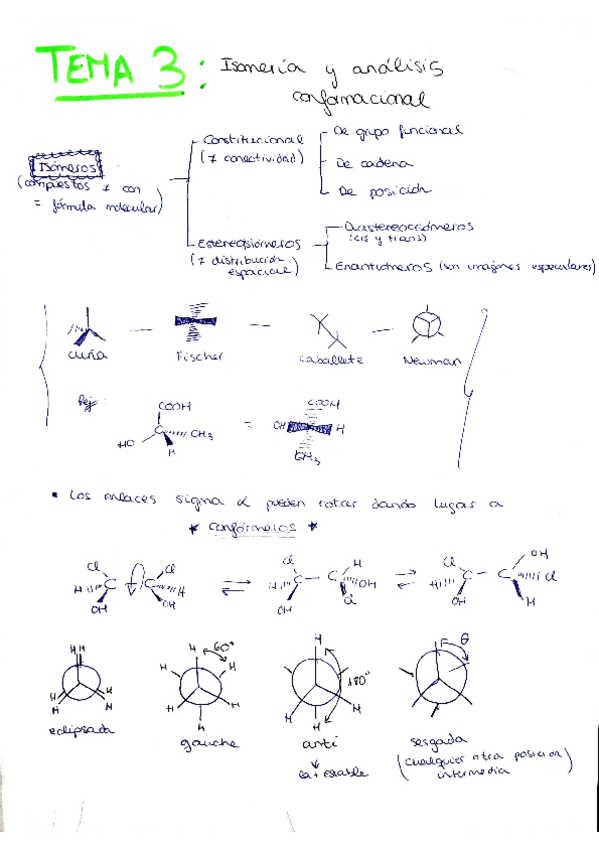 TEMA 3: Isomería y análisis
conformacional
Isómeros
(compuestos ≠ con
= fórmula molecular)
Constitucional
(≠ conectividad)
De grupo funcional
De cadena
De posición
Estereoisómeros
(≠ distribución
espacial)
Diastereoisómeros
(cis y trans)
Enantiómeros (son imágenes especulares)
cuña
Fischer
caballete
Newman
Pej:
COOH
C
CH3
HO
H
=
COOH
OH
H
CH3
• Los enlaces sigma α pueden rotar dando lugar a
* confórmeros *
Cl Cl
H C C H
OH OH
Cl H
H C C OH
OH Cl
Cl OH
H C C Cl
OH H
H H
H H
H H
eclipsada
H 60°
H H
H H
H
gauche
H
180°
H H
H
anti
la + estable
F θ
sesgada
(cualquier otra posición
intermedia)